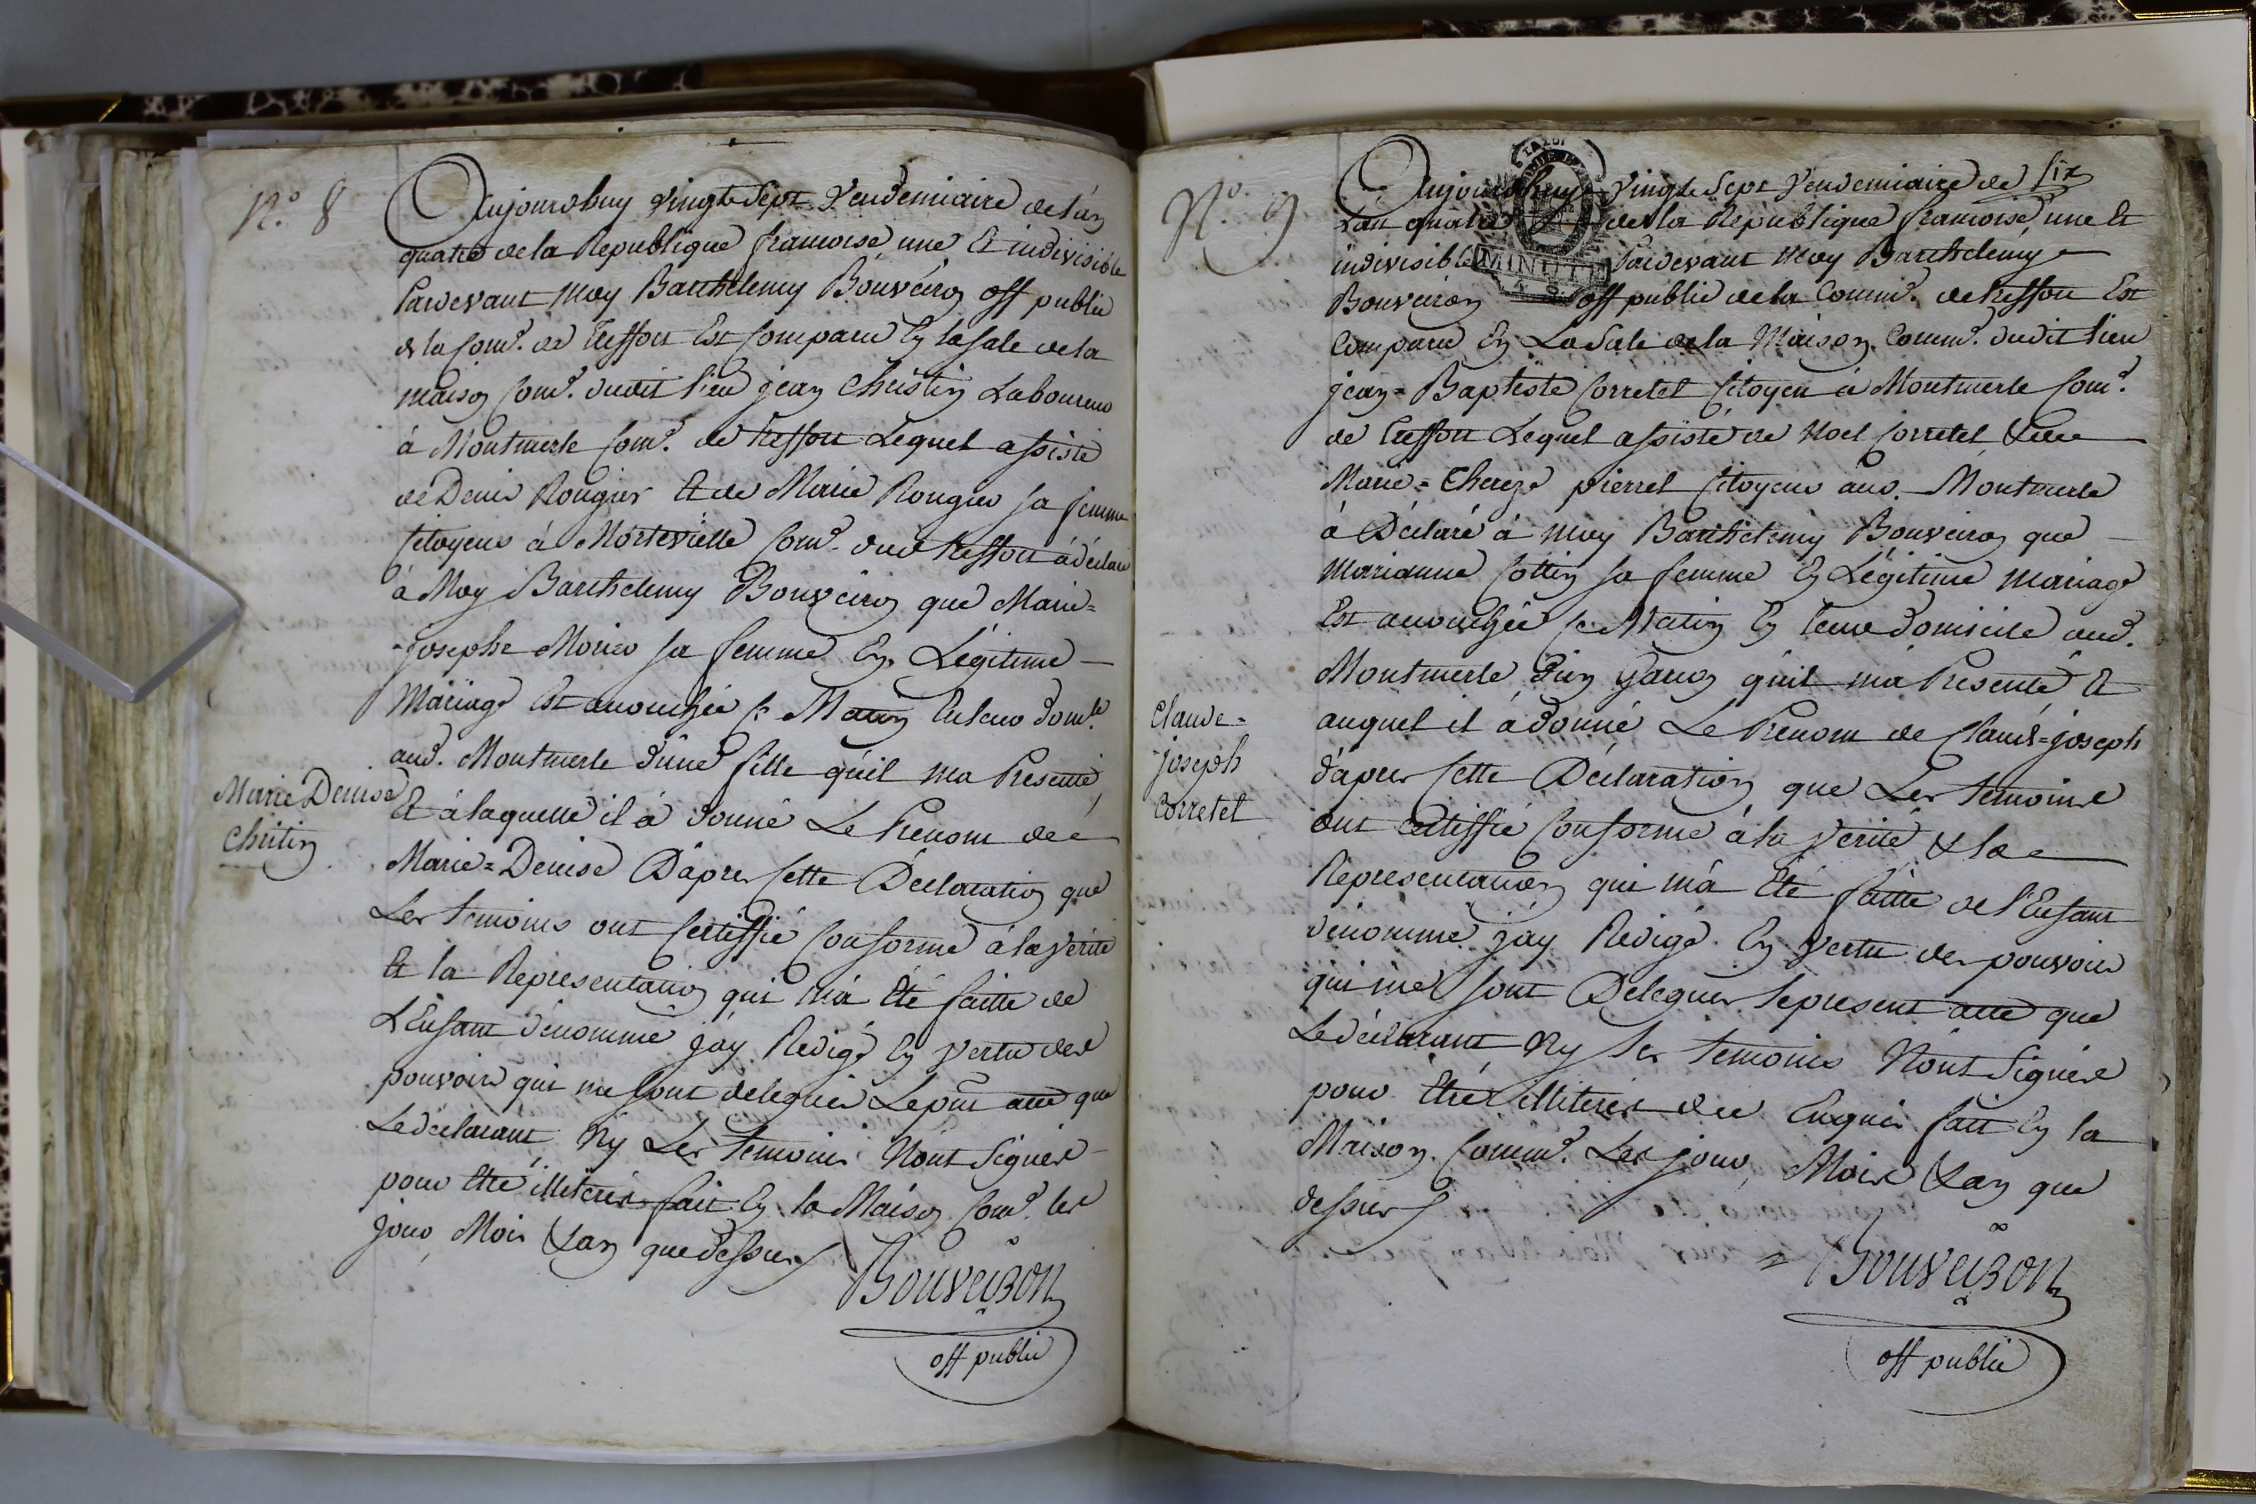 N.o 8
Aujourdhuy vingt Sept Vendemiaire de L'an
quatre de la Republique francoise une Et indivisible
Pardevant Moy Barthelemy Bouveiron off public
de la Com.e de Treffort Est Comparu En la Sale de la
maison Com.e dudit lieu jean Christin Laboureur
à Montmerle Com.e de Treffort Lequel assisté
de Denis Rougier Et de Marie Rougier sa femme
Citoyens à Mortevielle Com.e dud Treffort à déclaré
à Moy Barthelemy Bouveiron que Marie=
=josephe Morier sa femme En Légitime
Mariage Est accouchée ce Matin En leur dom.le
aud. Montmerle d'une fille qu'il ma Presenté
Et à laquelle il à donné Le Prenom de
Marie Denise
Chritin
Marie=Denise D'apres Cette Déclaration que
Les temoins ont Certiffié Conforme à la verité
Et la Representation qui m'a Eté faitte de
L'Enfant dénommé j'ay Redigé En vertu des
pouvoirs qui me sont delegués Le pnt acte que
Le déclarant Ny Les temoins N'ont Signés
pour Etre illiterés fait En la Maison Com.e les
jour Mois & an que dessus
Bouveiron
off public
six
N.o 9
Aujourdhuy vingt Sept Vendemiaire de
L'an quatre de la Republique francoise une Et
indivisible Pardevant Moy Barthelemy
MINUTE
Bouveiron off public de la Comm.e de Treffort Est
Comparu En La Sale de la Maison Comm.e dudit lieu
jean=Baptiste Corretel Citoyen à Montmerle Com.e
de Treffort Lequel assisté de Noel Corretel & de
Marie=Thereze pierrel Citoyens aud. Montmerle
à Déclaré à moy Barthelemy Bouveiron que
Marianne Cottin sa femme En Légitime mariage
Est accouchée ce Matin En leur domicile aud.
Montmerle d'un Garcon qu'il ma Presenté Et
auquel il à donné Le Prenom de Claude=joseph
Claude=
joseph
Corretel
d'apres Cette Déclaration que Les temoins
ont certiffié Conforme à la verité & la
Representation qui m'à Eté faitte de l'Enfant
dénommé j'ay Redigé En vertu des pouvoirs
qui me sont Delegués le present acte que
Le déclarant Ny les temoins N'ont Signés
pour Etre illiterés de Enquis fait En la
Maison Comm.e Les jour, Mois & an que
dessus
Bouveiron
off public